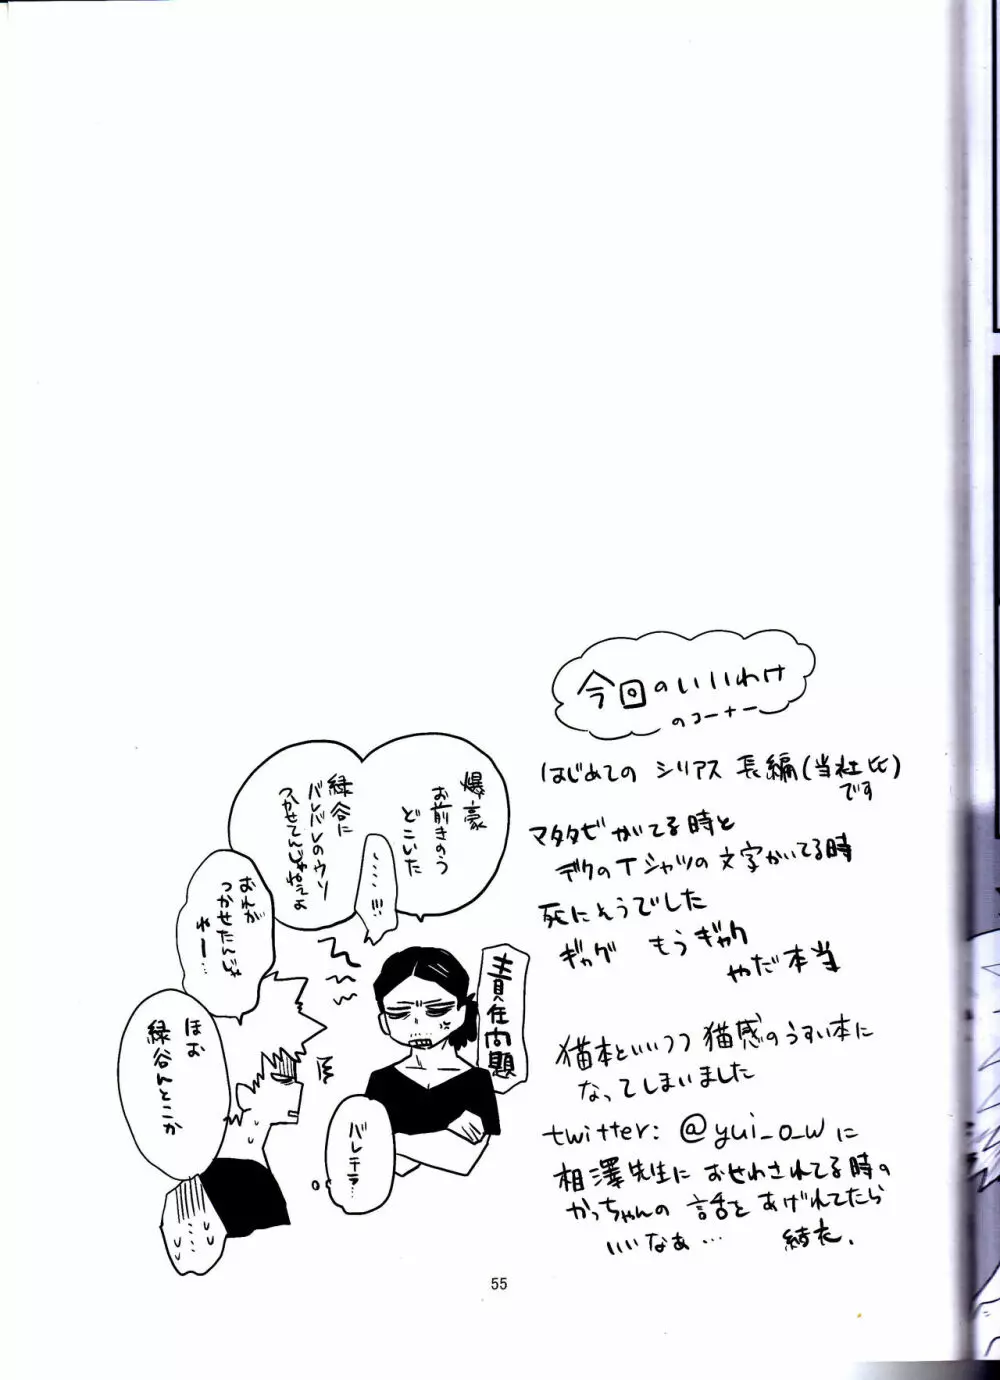 今回のいいわけ
のコーナー
はじめての シリアス 長編(当社比)
です
マタタビがてる時と
デクのTシャツの文字かいてる時
死にそうでした
ギャグ もうギャグ
やだ本当
猫本といいつつ猫感のうすい本に
なってしまいました
twitter: @yui_o_wに
相澤先生におせわされてる時の
かっちゃんの 話を あげれてたら
いいなぁ… 結衣.
爆豪
お前きのう
どこいた
……!!!
緑谷に
バレバレのウソ
つかせてんじゃねぇよ
責任問題
おれが
つかせたんじゃ
ねー…
ほお
緑谷んとこか
バレテラ…
……
55